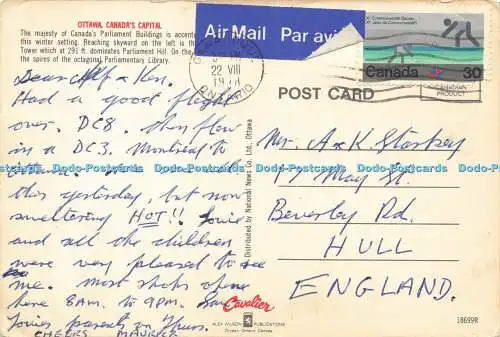 OTTAWA, CANADA'S CAPITAL
The majesty of Canada's Parliament Buildings is accente
this winter setting. Reaching skyward on the left is the
Tower which at 291 ft. dominates Parliament Hill. On the
the spires of the octagonal Parliamentary Library.
Dear Alf & Ken.
Had a good flight
over. DC8. Then flew
in a DC3. Montreal to
this yesterday, but now
sweltering HOT!!
and all the children
were very pleased to see
me. Most shops open
here 8AM. to 9PM.
parents on Thurs.
CHEERS MAURICE
Air Mail Par avi
22 VIII
ONTARIO
XI Commonwealth Games
XI Jeux du Commonwealth
Canada 30
CANADIAN
PRODUCT
POST CARD
Mr. A & K Starkey
17 May St.
Beverley Rd.
HULL
ENGLAND.
Distributed by National News Co. Ltd., Ottawa
Cavalier
ALEX WILSON PUBLICATIONS
Dryden Ontario Canada
18699R
Dodo-Postcards
www.Dodo-Postcards.com